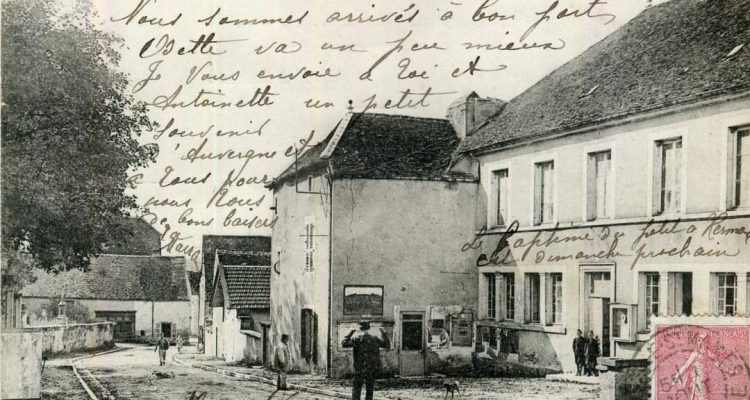 Nous sommes arrivés à bon port,
Odette va un peu mieux
Je vous envoie à toi et
Antoinette un petit
souvenir
d'Auvergne et
tous pour
nous
de bons baisers
Le Baptême du petit à
est dimanche prochain